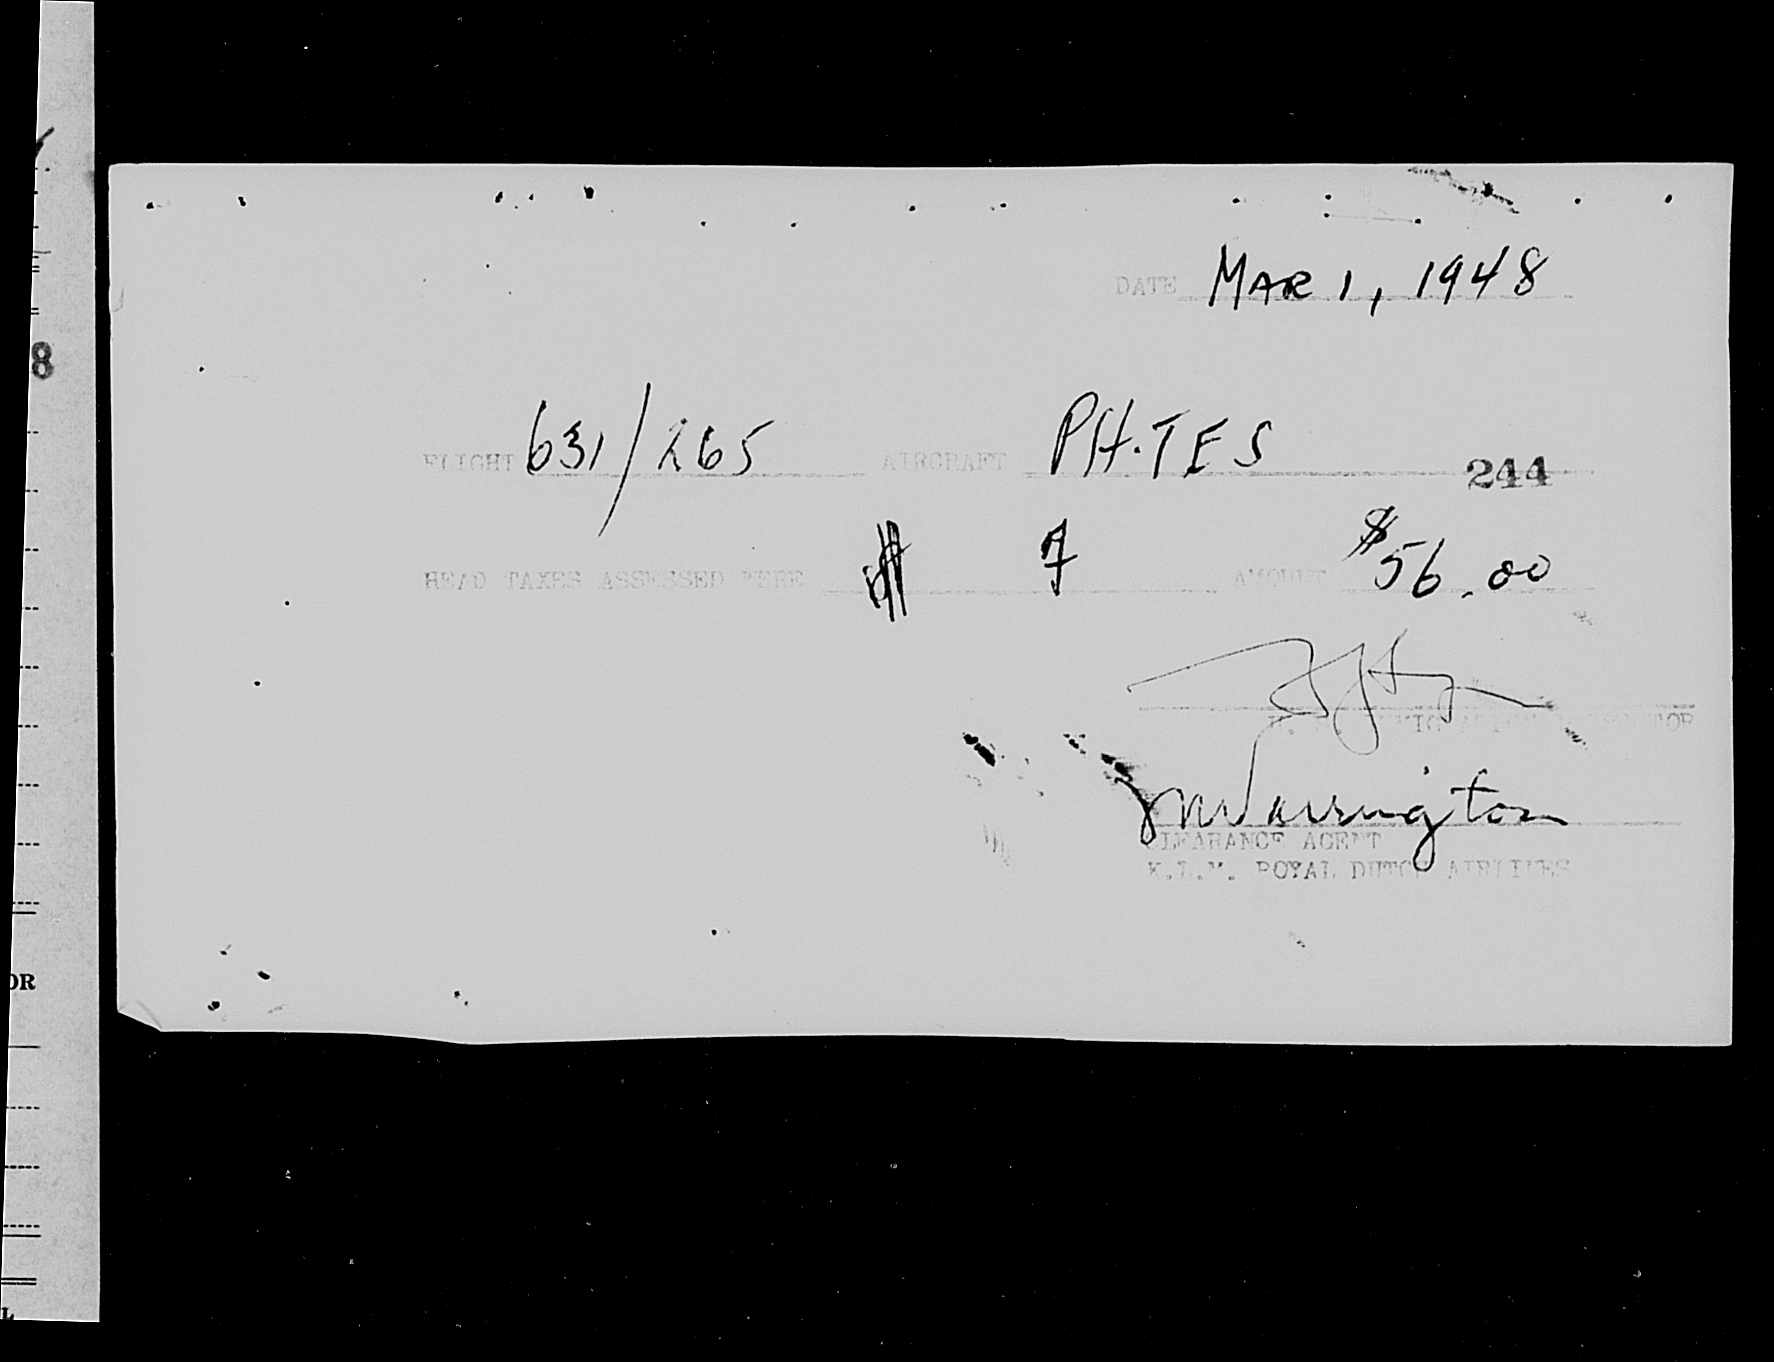 8
DATE MAR 1, 1948
FLIGHT 631/265 AIRCRAFT PH.TES
244
HEAD TAXES ASSESSED WERE 7 AMOUNT $56.00
Warrington
CLEARANCE AGENT
K.L.M. ROYAL DUTCH AIRLINES
OR